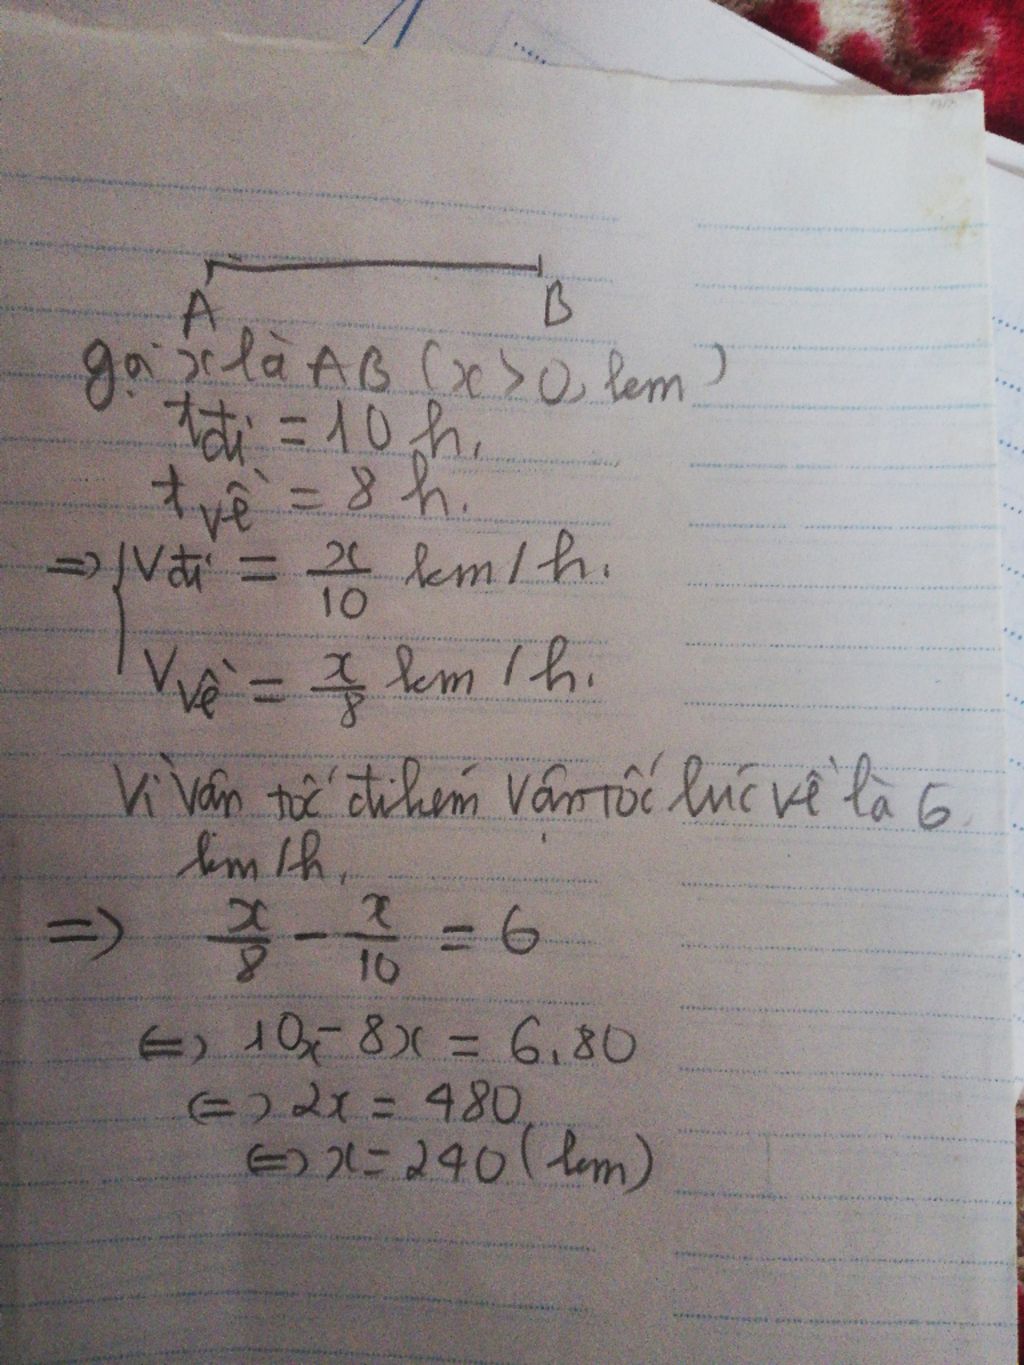 A B
gọi x là AB (x > 0, km)
t đi = 10 h.
t về = 8 h.
=> { V đi = x/10 km/h.
V về = x/8 km/h.
Vì vận tốc đi kém vận tốc lúc về là 6
km/h.
=> x/8 - x/10 = 6
<=> 10x - 8x = 6.80
<=> 2x = 480
<=> x = 240 (km)